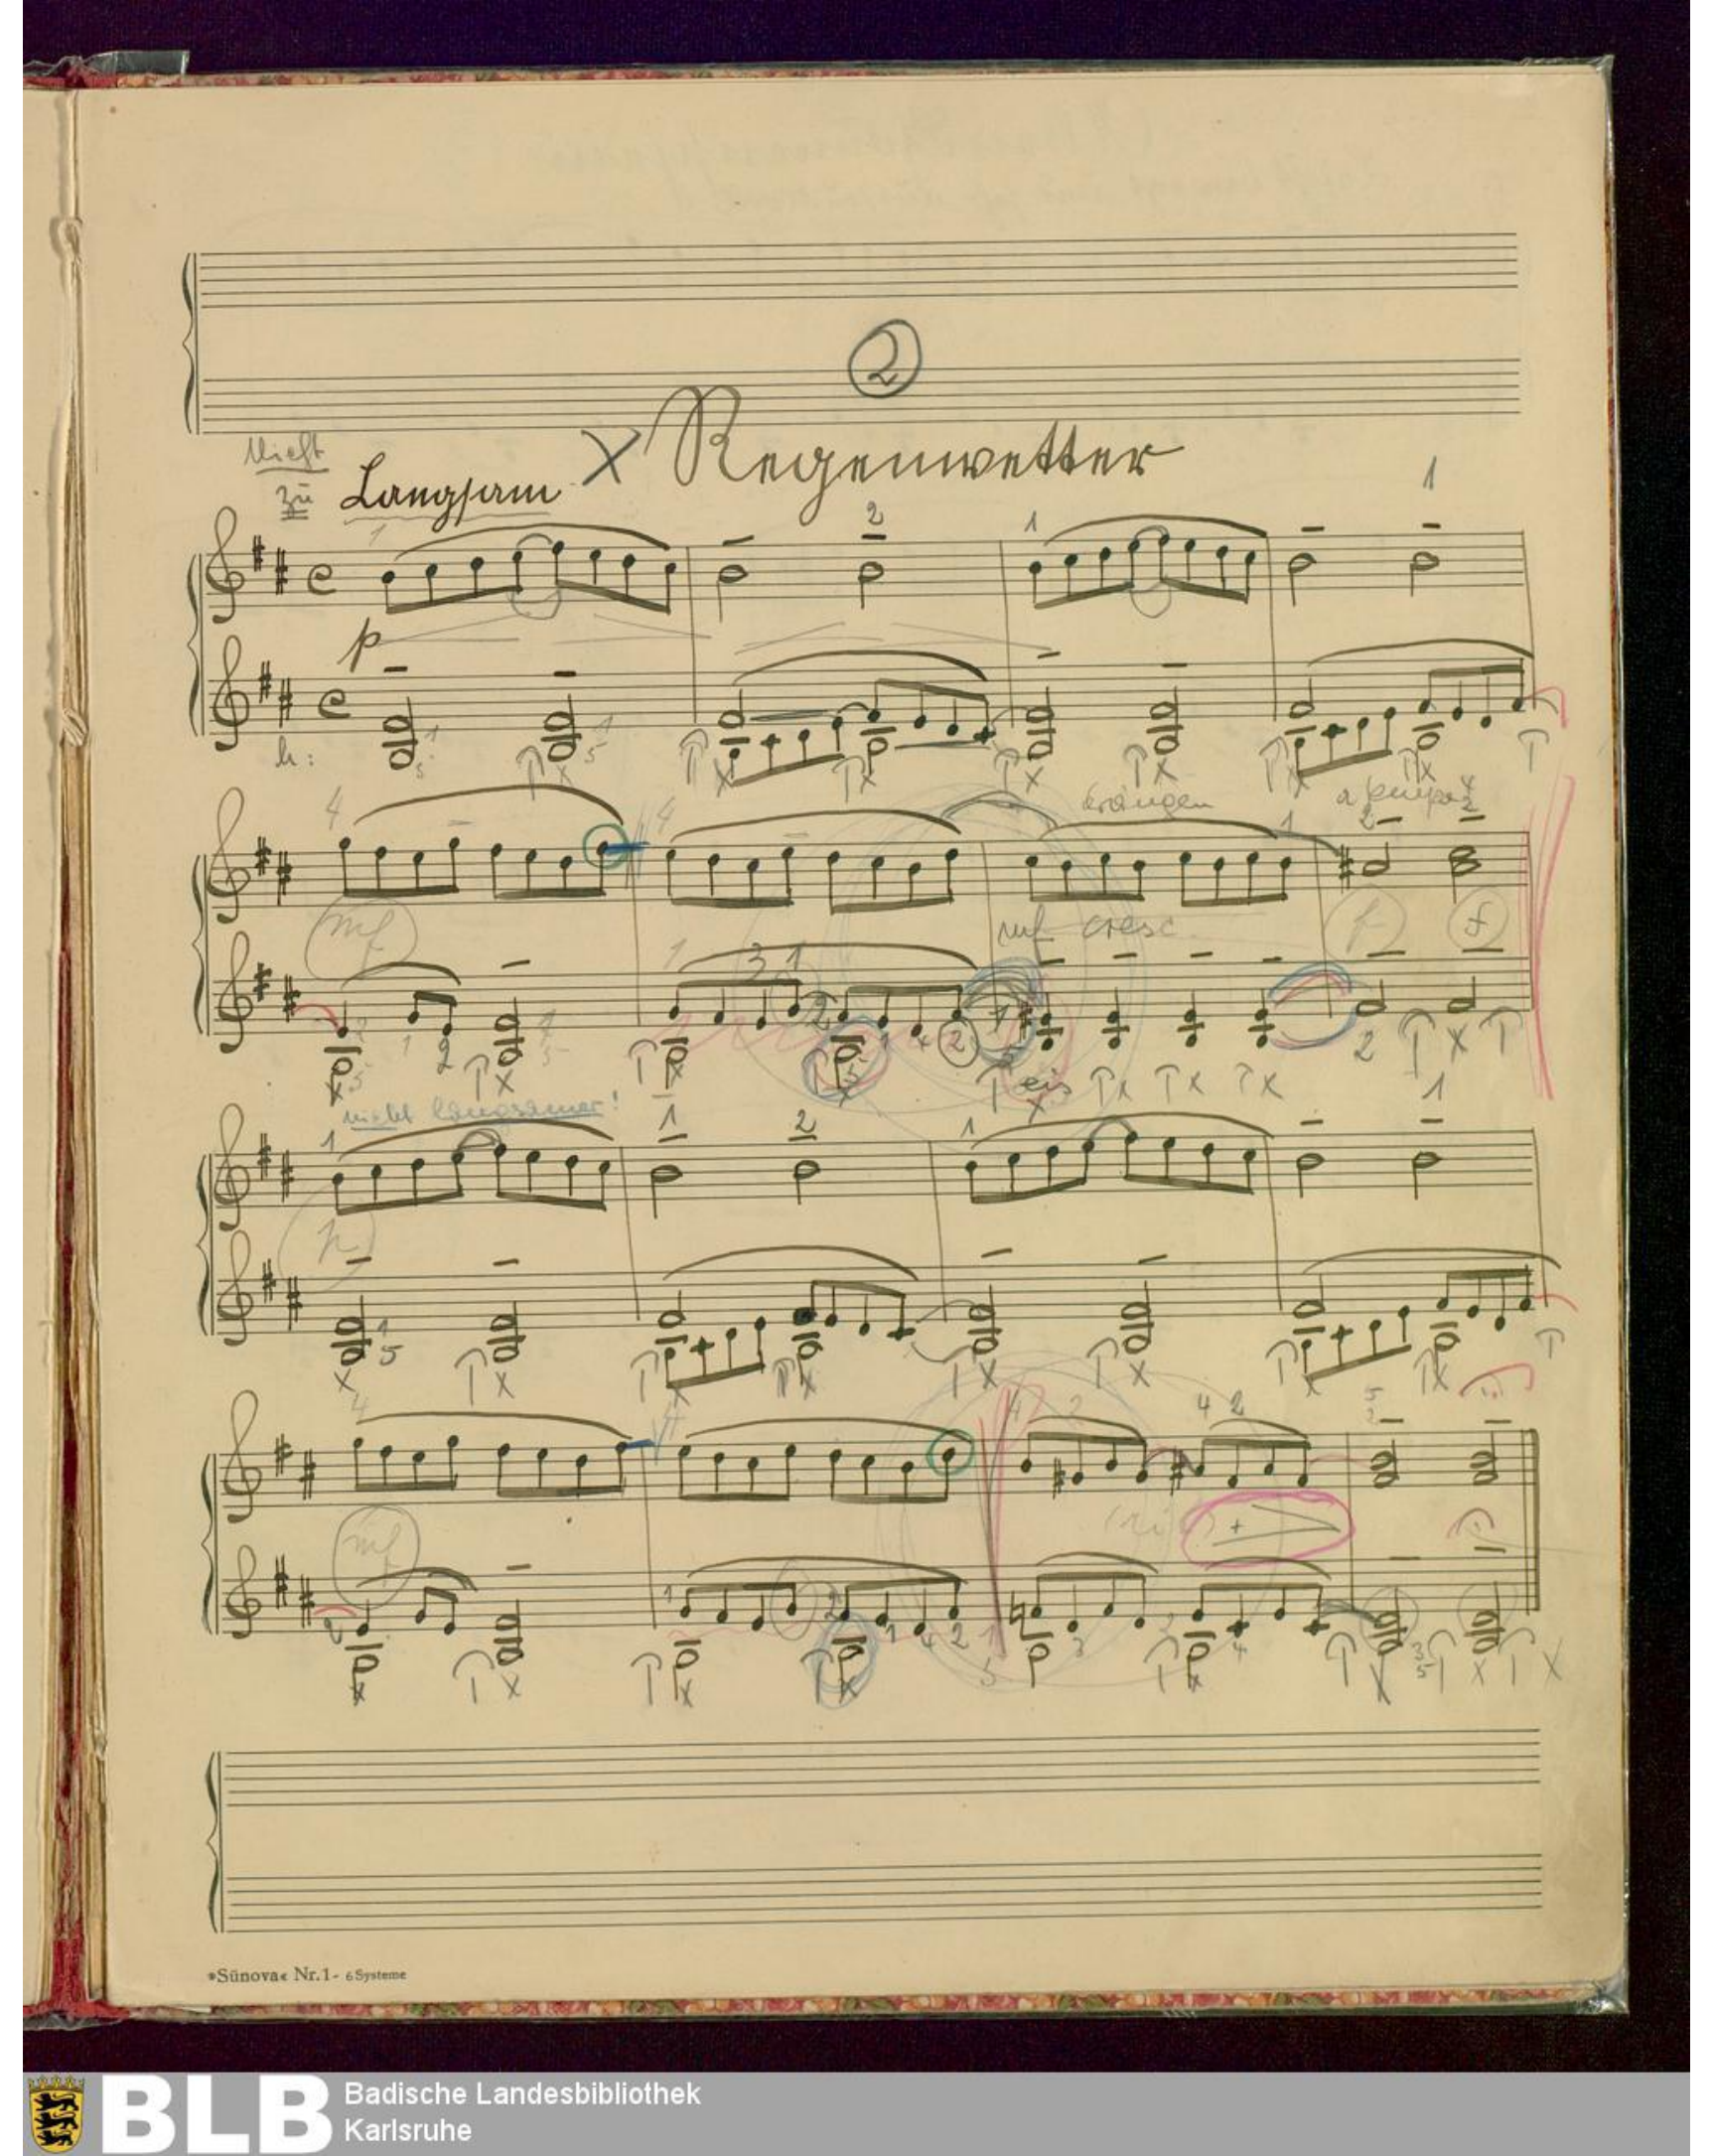 2
Nicht
zu Langsam X Regenwetter
1 2 1 1
p
h:
4 4 drängen a tempo
mf mf cresc. f f
eis
nicht langsamer!
1 1 2 1 1
p
4 4 4 2 4 2
mf
»Sünova« Nr.1- 6 Systeme
BLB Badische Landesbibliothek
Karlsruhe